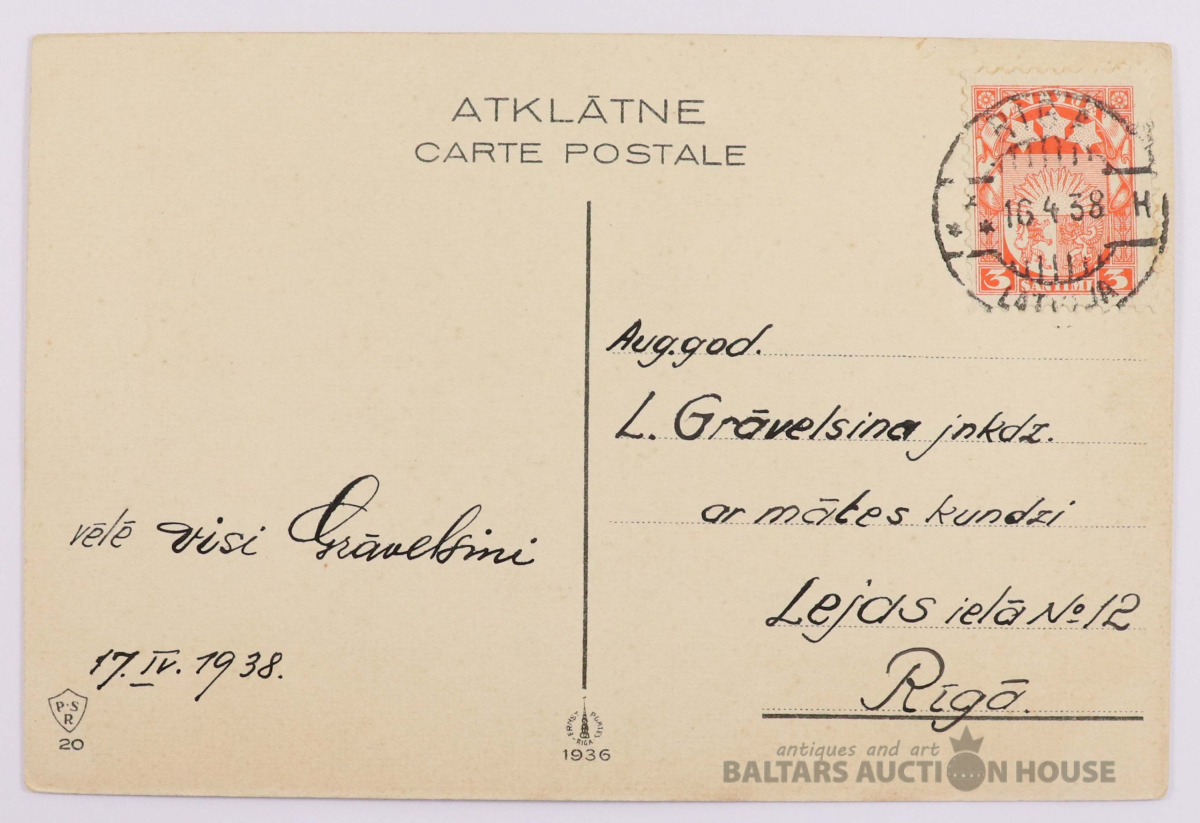 ATKLĀTNE
CARTE POSTALE
LATVIJA
RĪGA
16 4 38 H
3 SANTIMI 3
LATVIJA
Aug.god.
L. Grāvelsina jnkdz.
ar mātes kundzi
Lejas ielā No 12
Rīgā.
vēlē visi Grāvelsini
17.IV. 1938.
P·S
R
20
ERNST PLATES
RIGA
1936
antiques and art
BALTARS AUCTION HOUSE